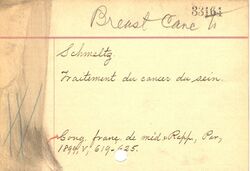 33164
Breast Canc
Schmeltz.
Traitement du cancer du sein.
Cong. franç. de méd. Rapp, Par,
1899, V, 619-625.